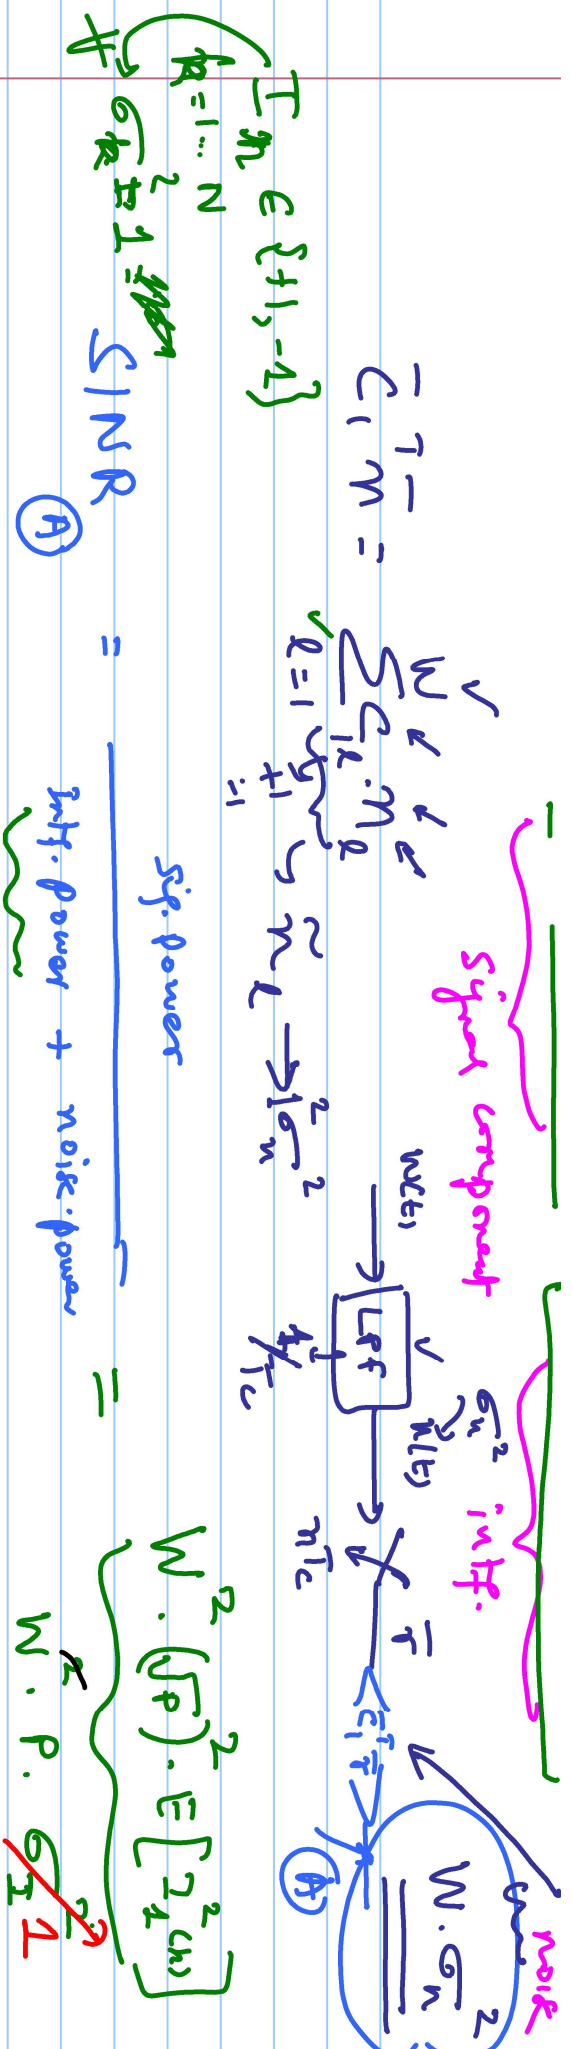 signal component
intf.
noise
w(t) → LPF → n(t) σ_n^2
1/T_c
nT_c
r̄
<c̄_1^T r̄>
Ⓐ
W.σ_n^2
c̄_1^T n̄ = Σ_{l=1}^{W} c_{1l} . n_l , ñ_l → σ_n^2
±1
I_k ∈ {+1, -1}
k=1... N
σ_I^2 = 1
SINR Ⓐ = Sig. power / Intf. power + noise. power =
W^2 . (√P)^2 . E[I_1^2(n)]
W^2 . P. σ_I^2 1